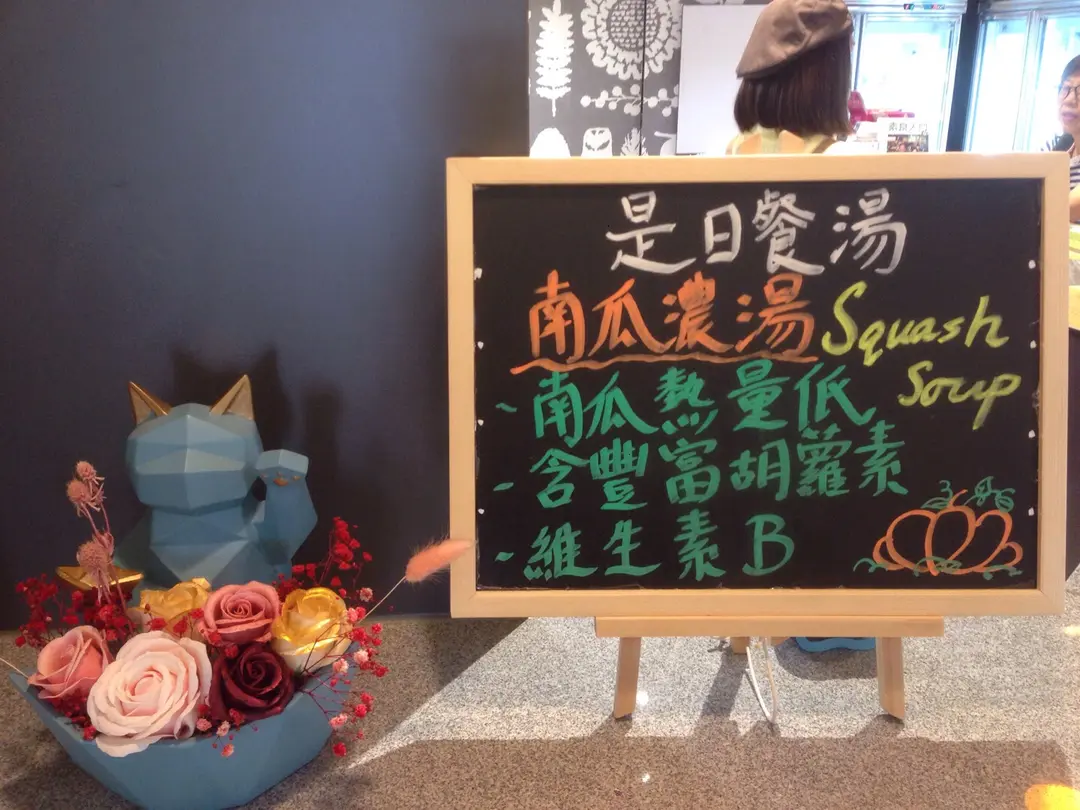 是日餐湯
南瓜濃湯 Squash
Soup
- 南瓜熱量低
- 含豐富胡蘿素
- 維生素B